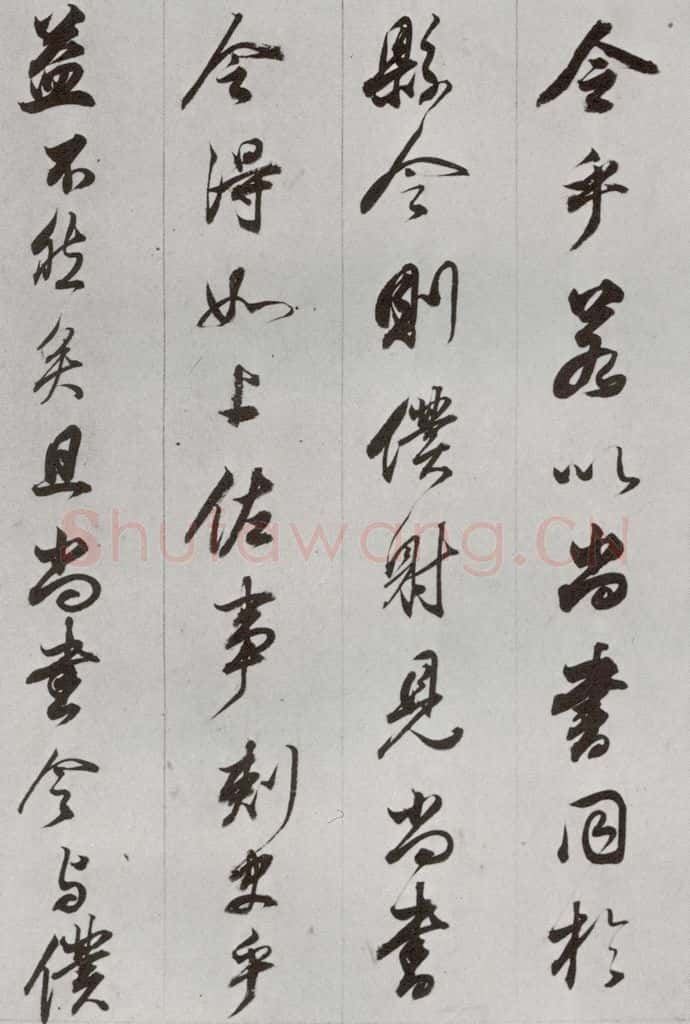 令乎若以尚書同於
縣令則僕射見尚書
令得如上佐事刺史乎
益不然矣且尚書令与僕
Shufawang.CN